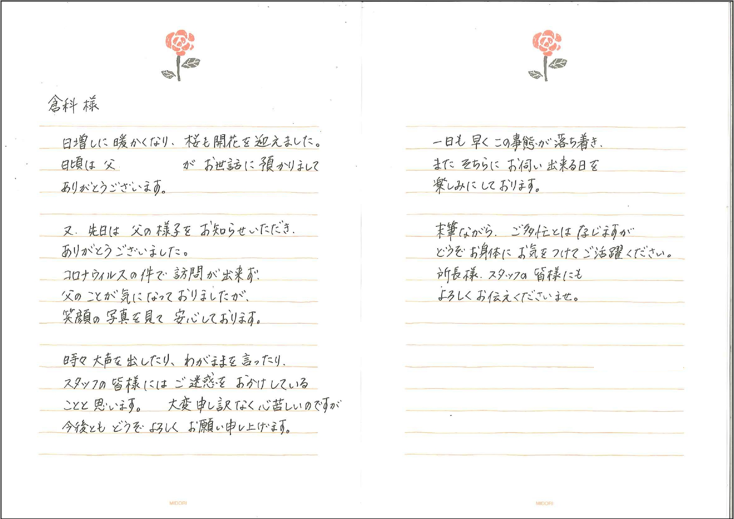 倉科 様
日増しに 暖かくなり、桜も開花を迎えました。
日頃は 父 が お世話に 預かりまして
ありがとうございます。
又、先日は 父の様子を お知らせいただき、
ありがとうございました。
コロナウィルスの件で 訪問が出来ず、
父のことが気になっておりましたが、
笑顔の写真を見て 安心しております。
時々 大声を出したり、わがままを言ったり、
スタッフの皆様には ご迷惑を おかけしている
ことと思います。 大変申し訳なく心苦しいのですが
今後とも どうぞ よろしく お願い申し上げます。
MIDORI
一日も早く この事態が落ち着き、
また そちらに お伺い出来る日を
楽しみにしております。
末筆ながら、ご多忙とは 存じますが
どうぞお身体に お気をつけて ご活躍ください。
所長様、スタッフの皆様にも
よろしくお伝えくださいませ。
MIDORI